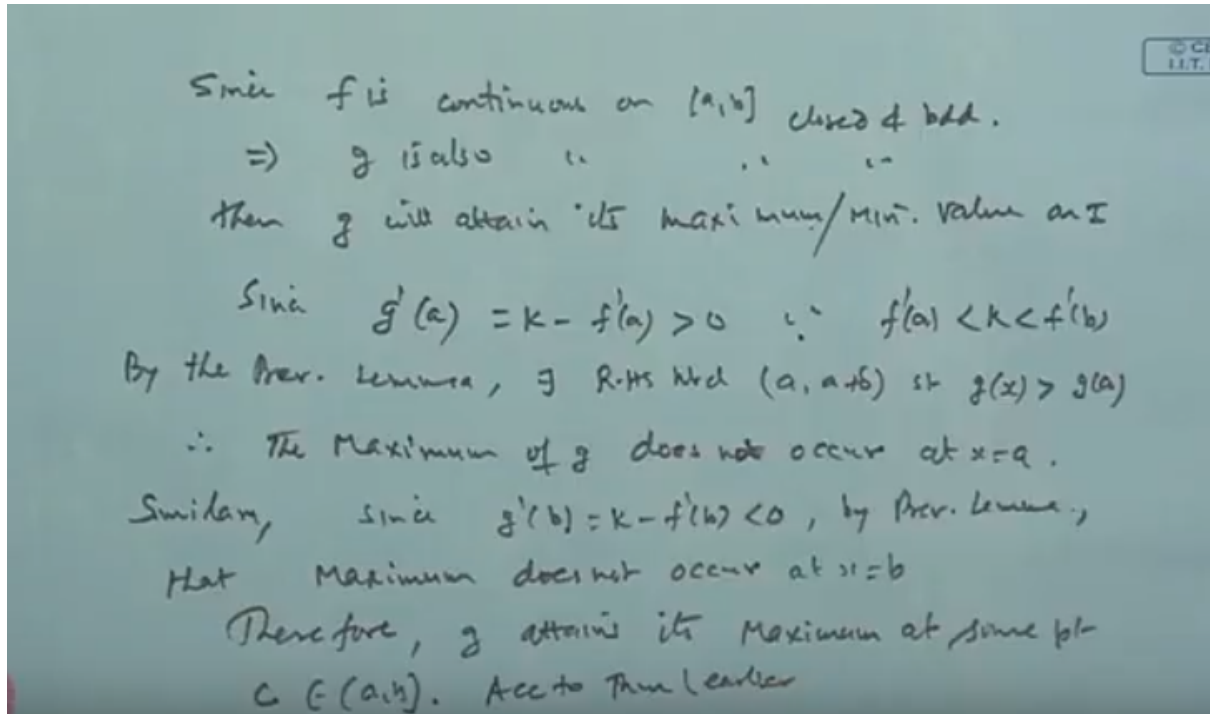 © CE
I.I.T.
Since f is continuous on [a,b] closed & bdd.
=) g is also " " "
then g will attain its maximum/Min. value on I
Since g'(a) = k - f'(a) > 0 ∵ f'(a) < k < f'(b)
By the Prev. Lemma, ∃ R.HS nbd (a, a+δ) st g(x) > g(a)
∴ The Maximum of g does not occur at x=a.
Similarly, since g'(b) = k - f'(b) < 0, by Prev. Lemma,
that Maximum does not occur at x=b
Therefore, g attains its Maximum at some pt
c ∈ (a,b). Acc to Thm (earlier